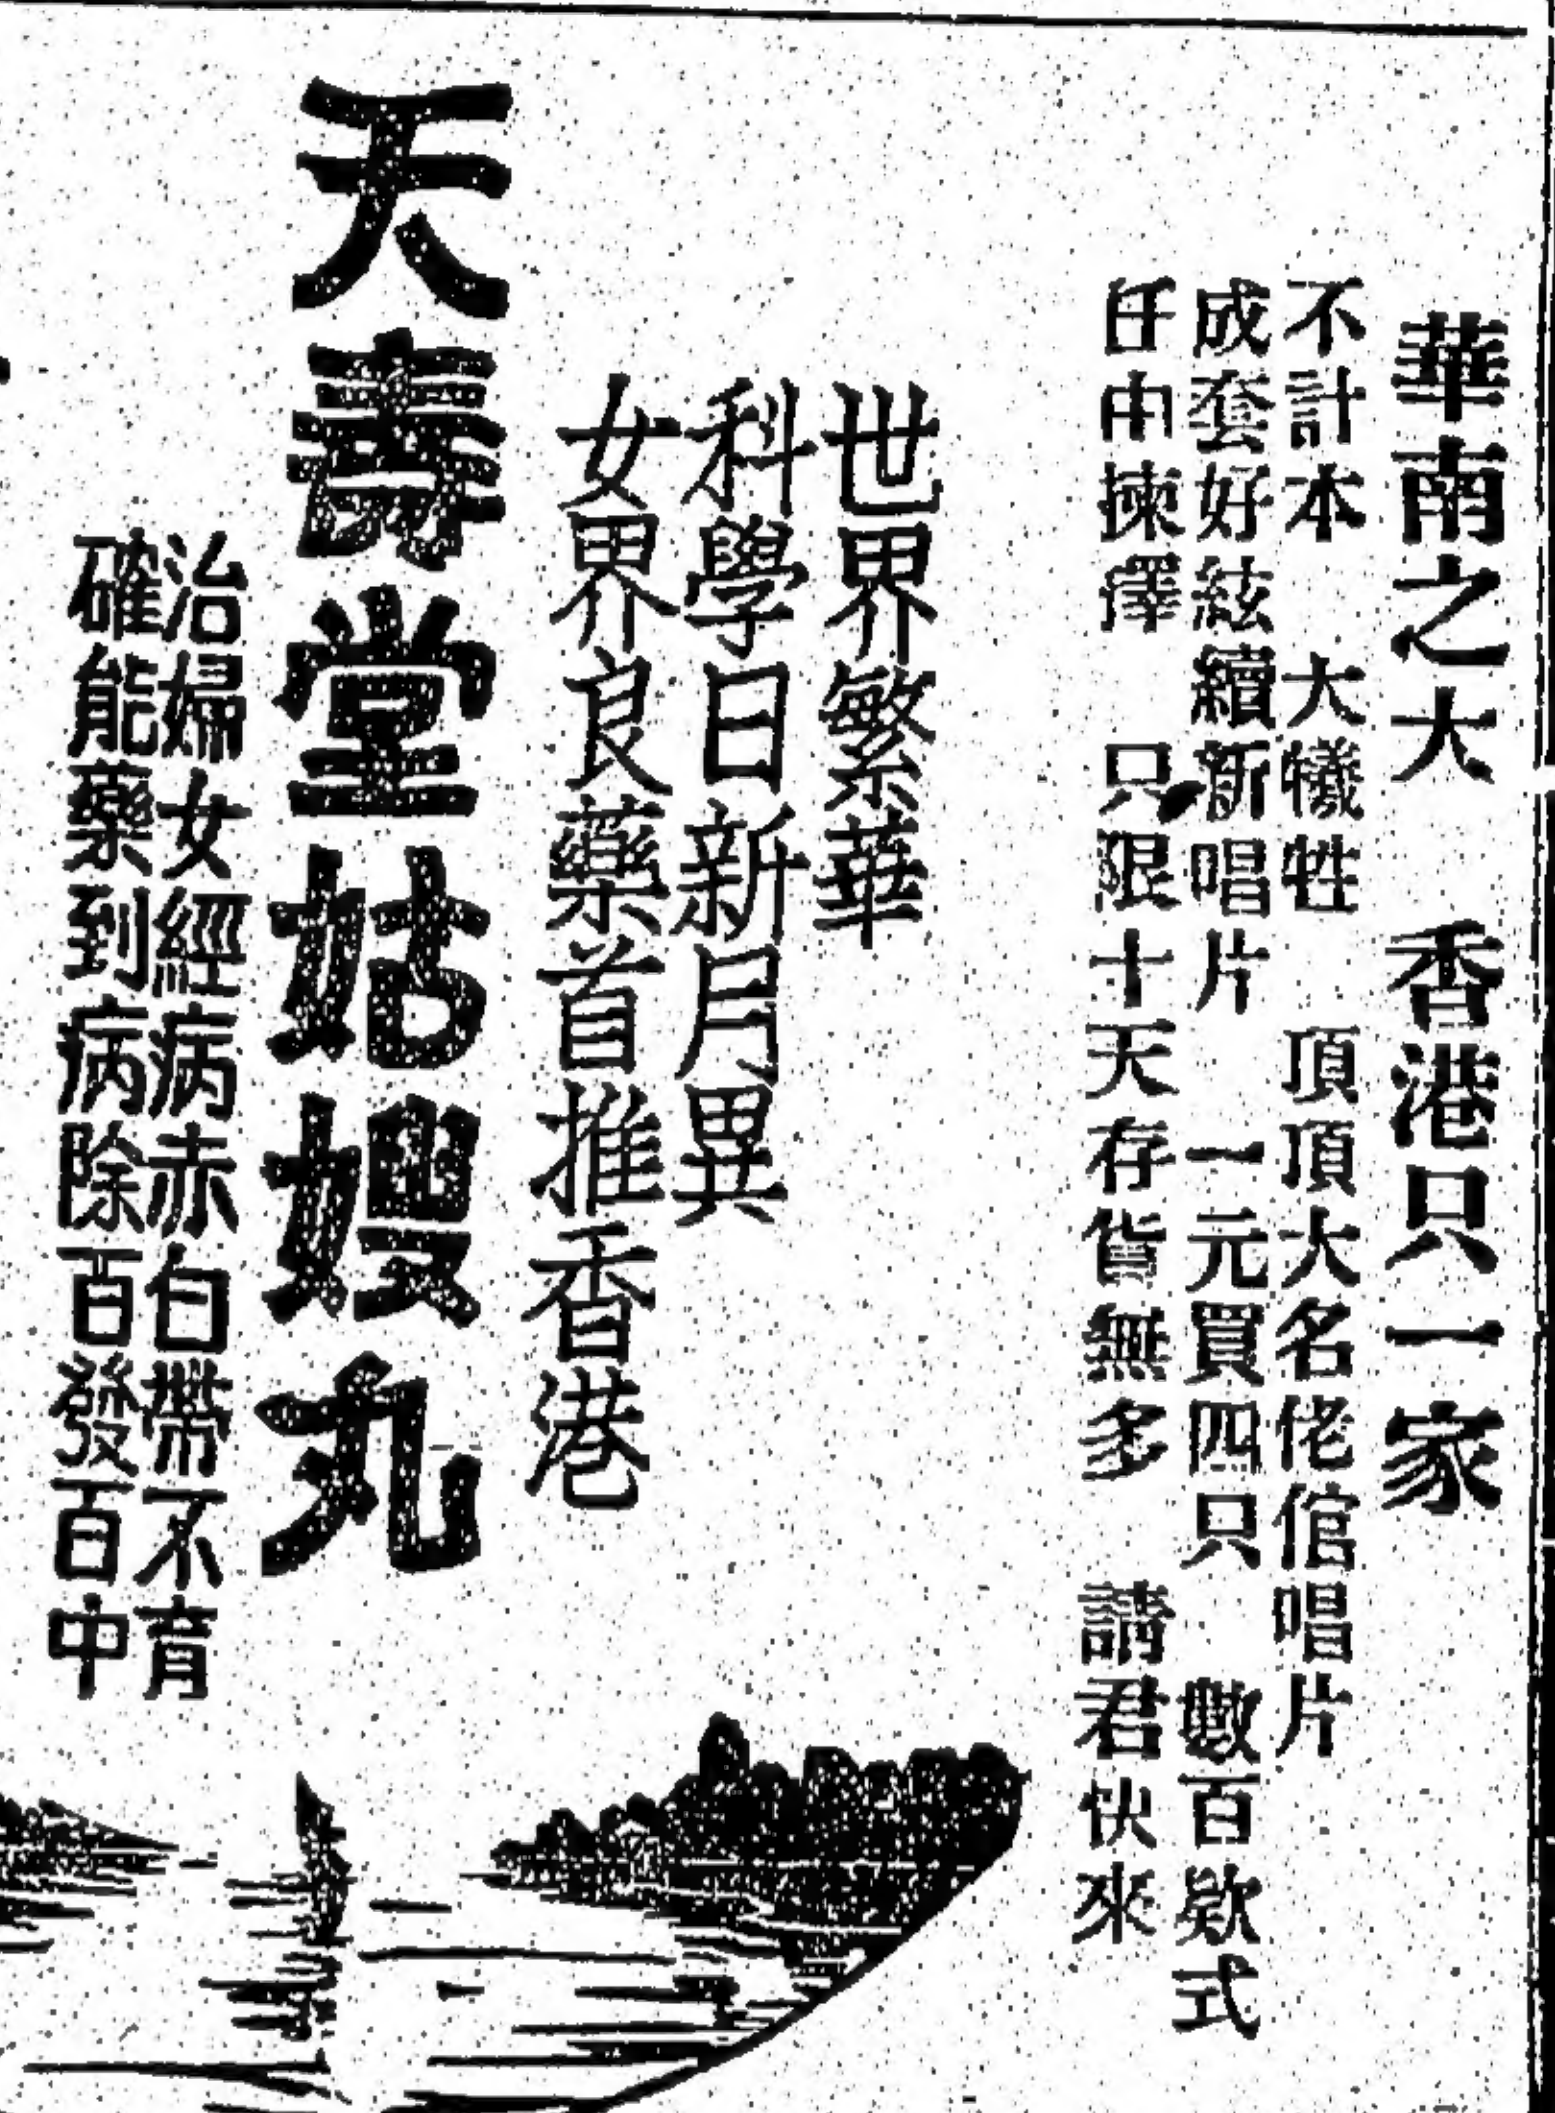 華南之大　香港只一家
不計本　大犧牲　頂頂大名佬倌唱片
成套好絃續新唱片　一元買四只　數百欵式
任由揀擇　只限十天存貨無多　請君快來
世界繁華
科學日新月異
女界良藥首推香港
天壽堂姑嫂丸
治婦女經病赤白帶不育
確能藥到病除百發百中